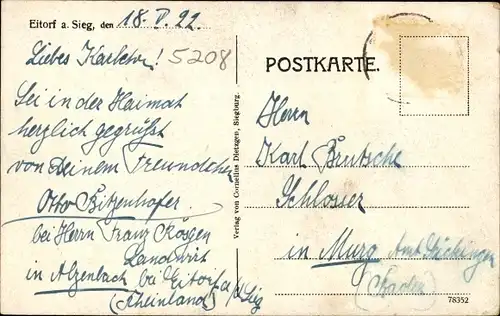 Eitorf a. Sieg, den 18. V. 22.
Liebes Karlchen! 5208
Sei in der Heimat
herzlich gegrüßt
von Deinem Freundchen
Otto Bitzenhofer
bei Herrn Franz Rösgen
Landwirt
in Alzenbach bei Eitorf a/d Sieg
(Rheinland)
Verlag von Cornelius Dietzgen, Siegburg.
POSTKARTE.
Herrn
Karl Brutsche
Schlosser
in Murg Amt Säckingen
(Baden)
78352